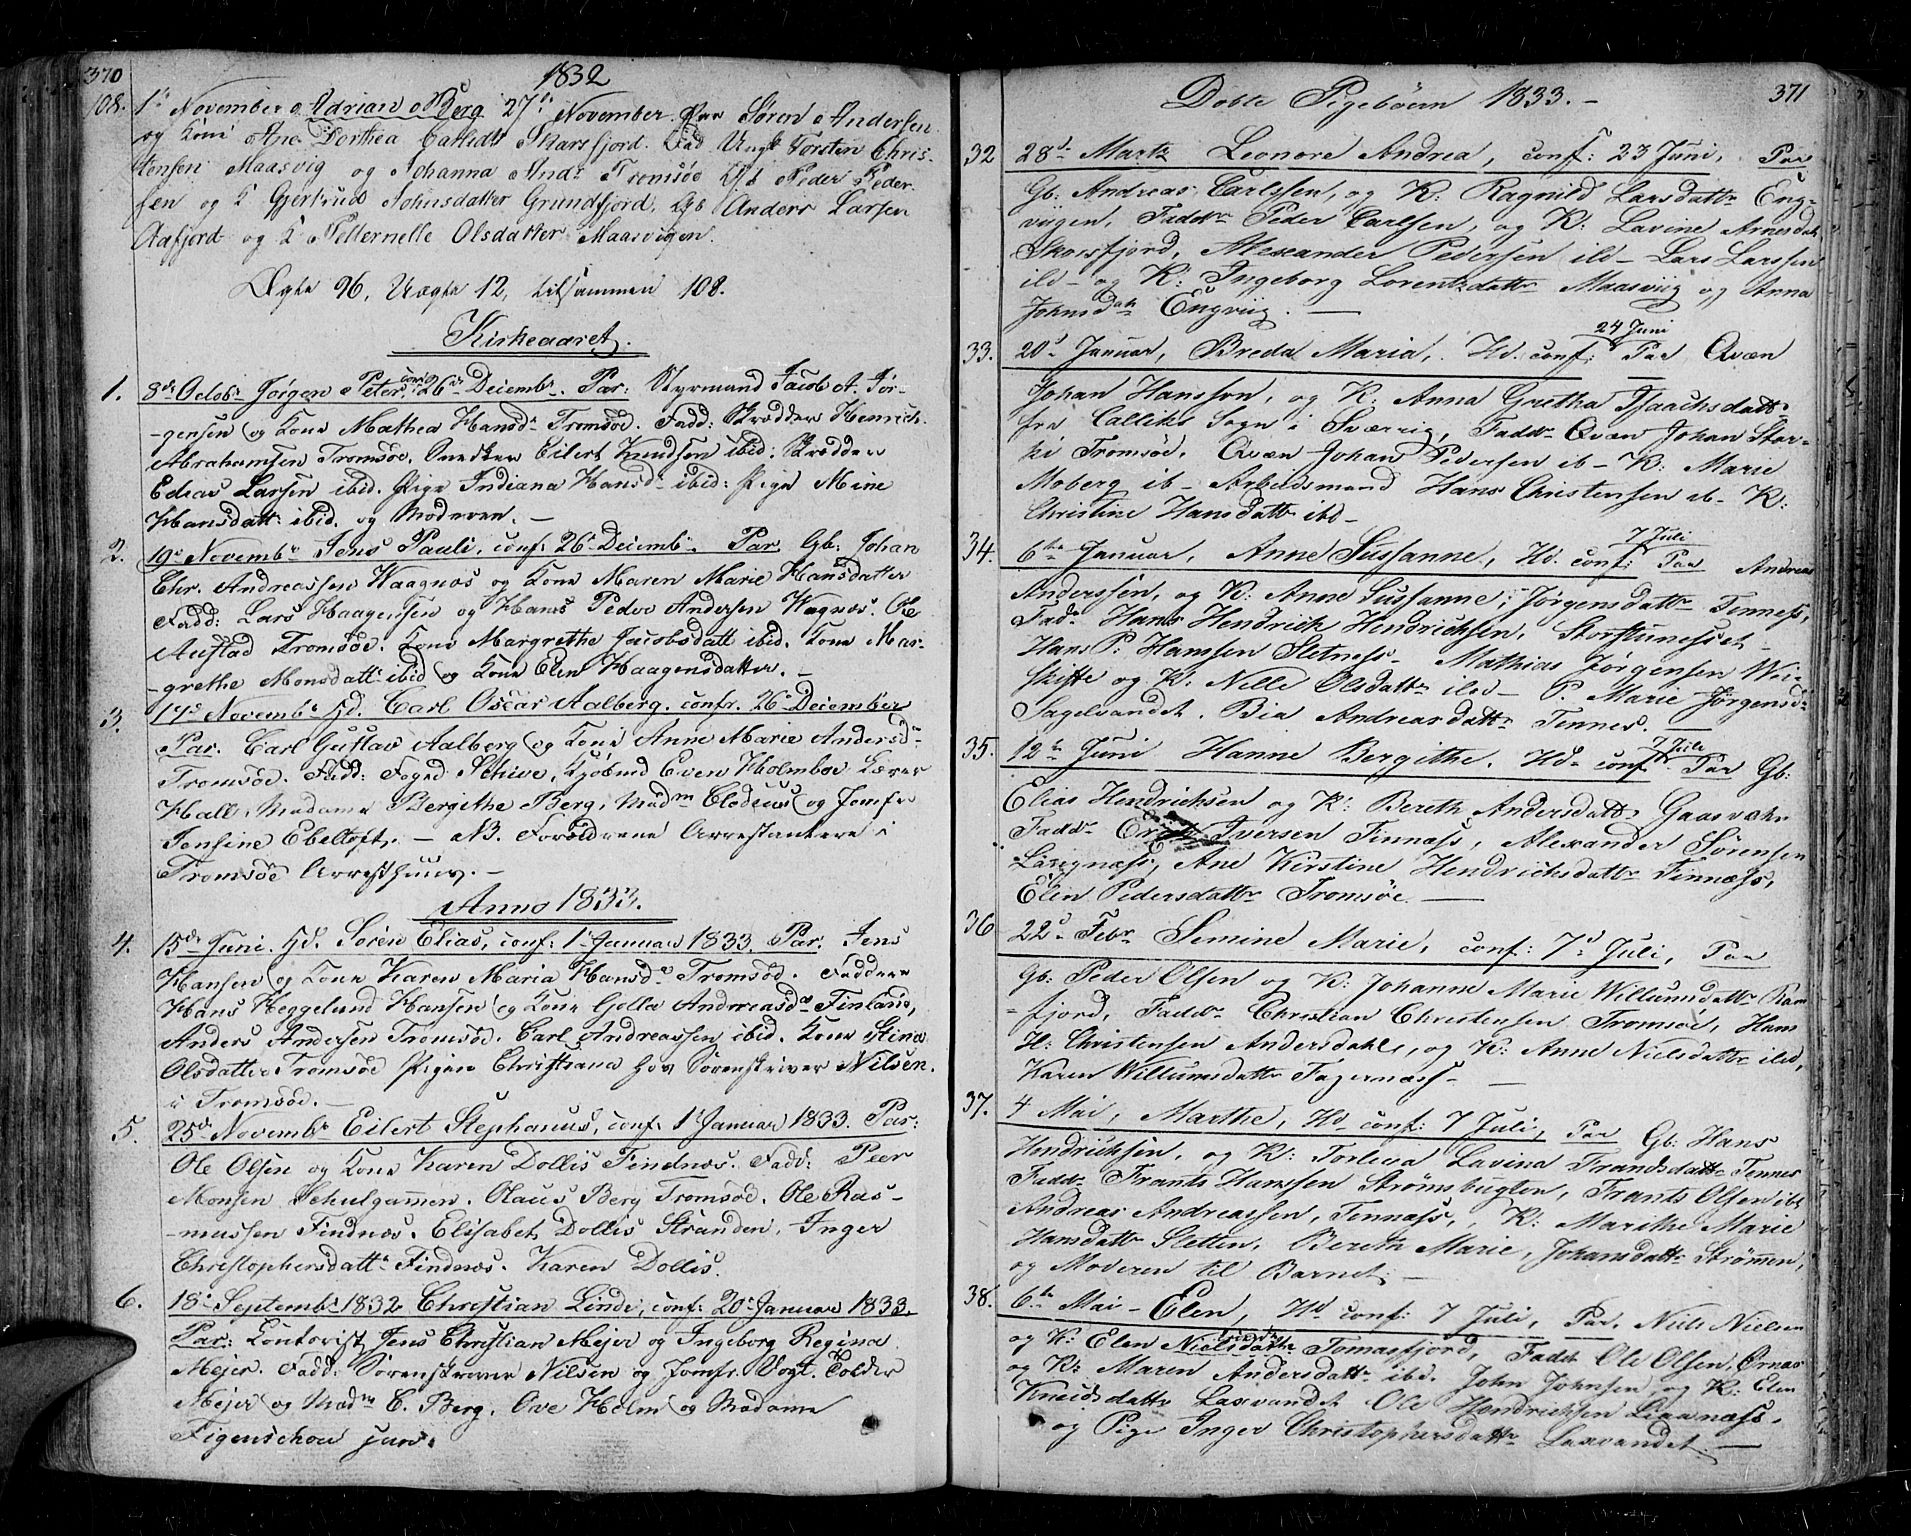 370
1832
108. 1te November Adrian Berg 27de November Par Søren Andersen
og Kone Ane Dorthea Skarsfjord. Fad Ungk Torsten Chris-
tensen Maasvig og Johanna Andr Tromsøe Peder Peder
sen og K Gjertrud Johnsdatter Grundfjord, Gb Anders Larsen
og K Pellernelle Olsdatter Maasvigen.
Ægte 96, Uægte 12, tilsammen 108.
Kirkeaaret.
1. 3de Octobr Jørgen Peter, conf: 26de Decembr. Par: Styrmand Jacob A. Jør-
gensen og Kone Mathea Hansdr Tromsöe. Fadd: Skrædder Henrich
Abrahamsen Tromsöe, Snedker Eilert Knudsen ibid: Skrædder
Edias Larsen ibid. Pige Indiana Hansdr ibid: Pige Mine
Hansdattr ibid. og Moderen.
2. 19de Novembr Jens Pauli, conf: 26de Decembr. Par Gb: Johan
Chr. Andreassen Waagnæs og Kone Maren Marie Hansdatter
Fadd: Lars Haagensen og Hans Peder Andersen Wagnæs. Ole
Austad Tromsöe. Kone Margrethe Jacobsdatt ibid. Kone Mar-
grethe Monsdatt ibid og Kone Elen Haagensdatter.
3. 17de Novembr Hd. Carl Oscar Aalberg. confr. 26de December
Par: Carl Gustav Aalberg og Kone Anne Marie Andersdr
Tromsöe. Fadd: Foged Schive, Kjöbmd Even Holmboe Lærer
Hall, Madame Bergithe Berg, Madm Clodius og Jomfr
Jensine Ebeltoft. — NB. Forældrene Arrestantere i
Tromsöe Arresthuus. —
Anno 1833.
4. 15de Juni. Hd. Sören Elias, conf: 1te Januar 1833. Par: Jens
Hansen og Kone Karen Maria Hansdr Tromsöe. Faddere
Hans Heggelund Hansen og Kone Golla Andreasdr Finland,
Anders Andersen Tromsöe. Carl Andreassen ibid. Kone Stina
Olsdatter Tromsöe Pigen Christiana hos Sorenskriver Nilsen.
i Tromsöe. —
5. 25de Novembr Eilert Stephanus, conf: 1 Januar 1833. Par:
Ole Olsen og Kone Karen Dollis Findnæs. Fadd: Peer
Monsen Schulgammen. Olaus Berg Tromsöe. Ole Ras-
mussen Findnæs. Elisabet Dollis Stranden, Inger
Christophersdattr Findnæs. Karen Dollis.
6. 18de Septembr 1832 Christian Linde, conf: 20de Januar 1833.
Par: Contorist Jens Christian Mejer og Ingeborg Regina
Mejer. Fadd: Sorenskriver Nilsen og Jomfr. Vogt. Tolder
Mejer og Madm C. Berg, Ove Holm og Madame
Figenschou jun.
371
Döbte Pigebörn 1833. —
32 28de Martz Leonore Andrea, conf: 23 Juni, Par
Gb: Andreas Carlssen, og K: Ragnild Larsdattr Eng-
vigen, Faddr Peder Carlsen, og K: Lavine Arnesdatt
Skorsfjord, Alexander Pedersen ibd — Lars Larssen
ibd — og K: Ingeborg Lorentzdattr Maasviig og Anna
Johnsdatr Engviig. —
24 Juni
33. 20de Januar, Breda Maria, Hd. conf: Par Qvæn
Johan Hansson, og K: Anna Gretha Isaachsdattr
fra Calliks Sogn i Sværrig, Faddr Qvæn Johan Star-
ki Tromsöe, Qvæn Johan Pedersen ib — K: Marie
Moberg ib — Arbeidsmand Hans Christensen ib — K:
Christine Hansdattr ibd —
7 Juli
34. 6te Januar, Anne Sussanne, Hd. conf: Par Andreas
Anderssen, og K: Anne Sussanne, Jørgensdattr Tenness,
Fadr Hans Hendrich Hendrichsen, Storstuneset —
Hans P. Hamsen Sletness — Mathias Jørgensen Wei-
skifte og K: Nille Olsdattr ibd — P. Marie Jørgensd
Sagelvandet. Bia Andreasdattr Tennes. —
7 Juli
35. 12te Juni Hanne Bergithe. Hd. conf Par Gb:
Elias Hendrichsen og K: Bereth Andersdattr Gaasvæhr
Faddr Iversen Finnæss, Alexander Sörensen
Laxegnæss, Ane Kirstine Hendrichsdattr Finnæss,
Elen Pedersdattr Tromsöe —
36 22de Febr Semine Marie, conf: 7de Juli, Par
Gb: Peder Olsen og K: Johanne Marie Willumsdattr Ram-
fjord, Faddr Christian Christensen Tromsöe, Hans
H: Christensen Andersdahl, og K: Anne Nielsdattr ibd,
Karen Willumsdattr Fagernæss —
37. 4 Mai, Marthe, Hd. conf: 7 Juli, Par Gb: Hans
Hendrichsen, og K: Torlena Lavina Frandsdattr Tennes
Faddr Frants Hanssen Strömsbugten, Frants Olsen ibd
Andreas Andreassen, Tennæss, K: Marithe Marie
Hansdattr Sletten, Bereth Marie, Johansdattr Strömmen,
og Moderen til Barnet. —
38. 6te Mai — Elen, Hd conf: 7 Juli, Par. Niels Nielsen
og K: Elen Nielsdattr Tomasfjord, Fadd Ole Olsen, Ornæs
og K: Maren Andersdattr ibd. John Johnsen, og K: Elen
Knudsdattr Laxvandet Ole Hendrichsen Liaanæss.
og Pige Inger Christophersdattr Laxvandet. —